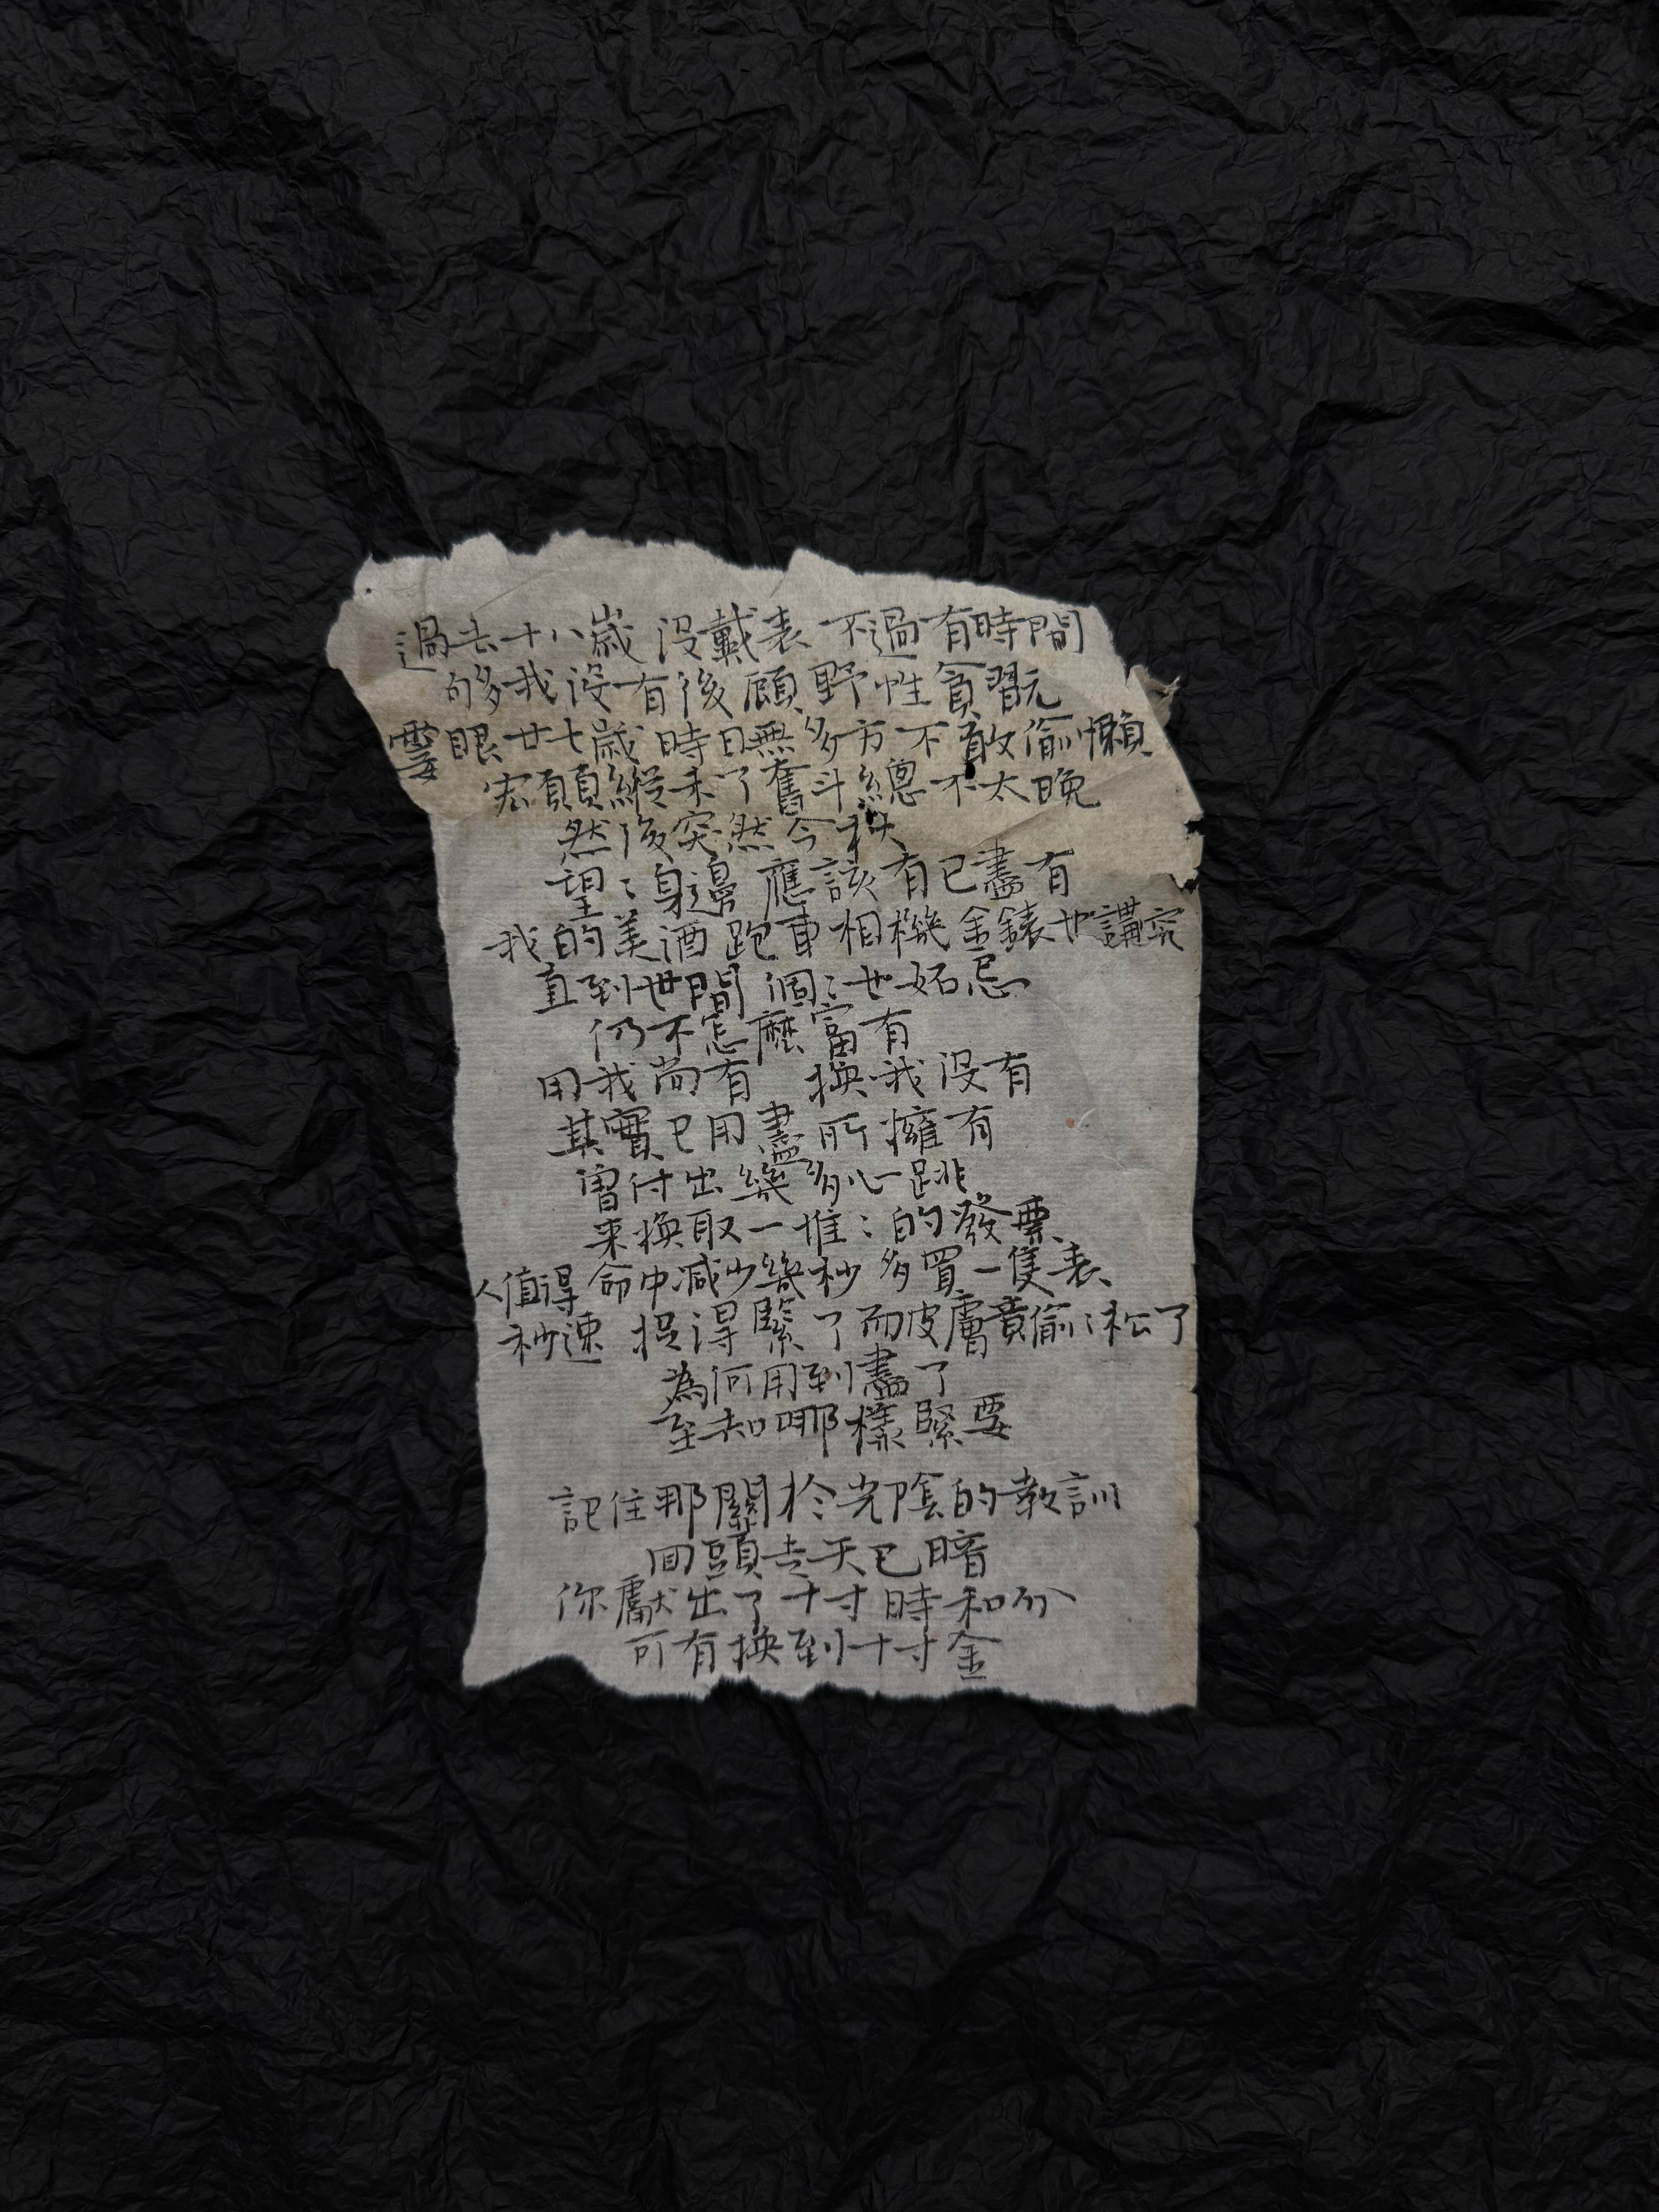 過去十八歲 沒戴表 不過有時間
够多我沒有後顧 野性貪習玩
霎眼廿七歲 時日無多方不敢偷懶
宏願縱未了奮斗總不太晚
然後突然今秋
望:身邊 應該有已盡有
我的美酒跑車相機金錶也講究
直到世間個:也妬忌
仍不怎麽富有
用我尚有 換我沒有
其實已用盡所擁有
曾付出幾多心跳
来換取一堆:的發票
人值得命中減少幾秒 多買一隻表
秒速 捉得緊了而皮膚竟偷:松了
為何用到盡了
至知哪樣緊要
記住那關於光陰的教訓
回頭走天已暗
你獻出了十寸時和分
可有換到十寸金